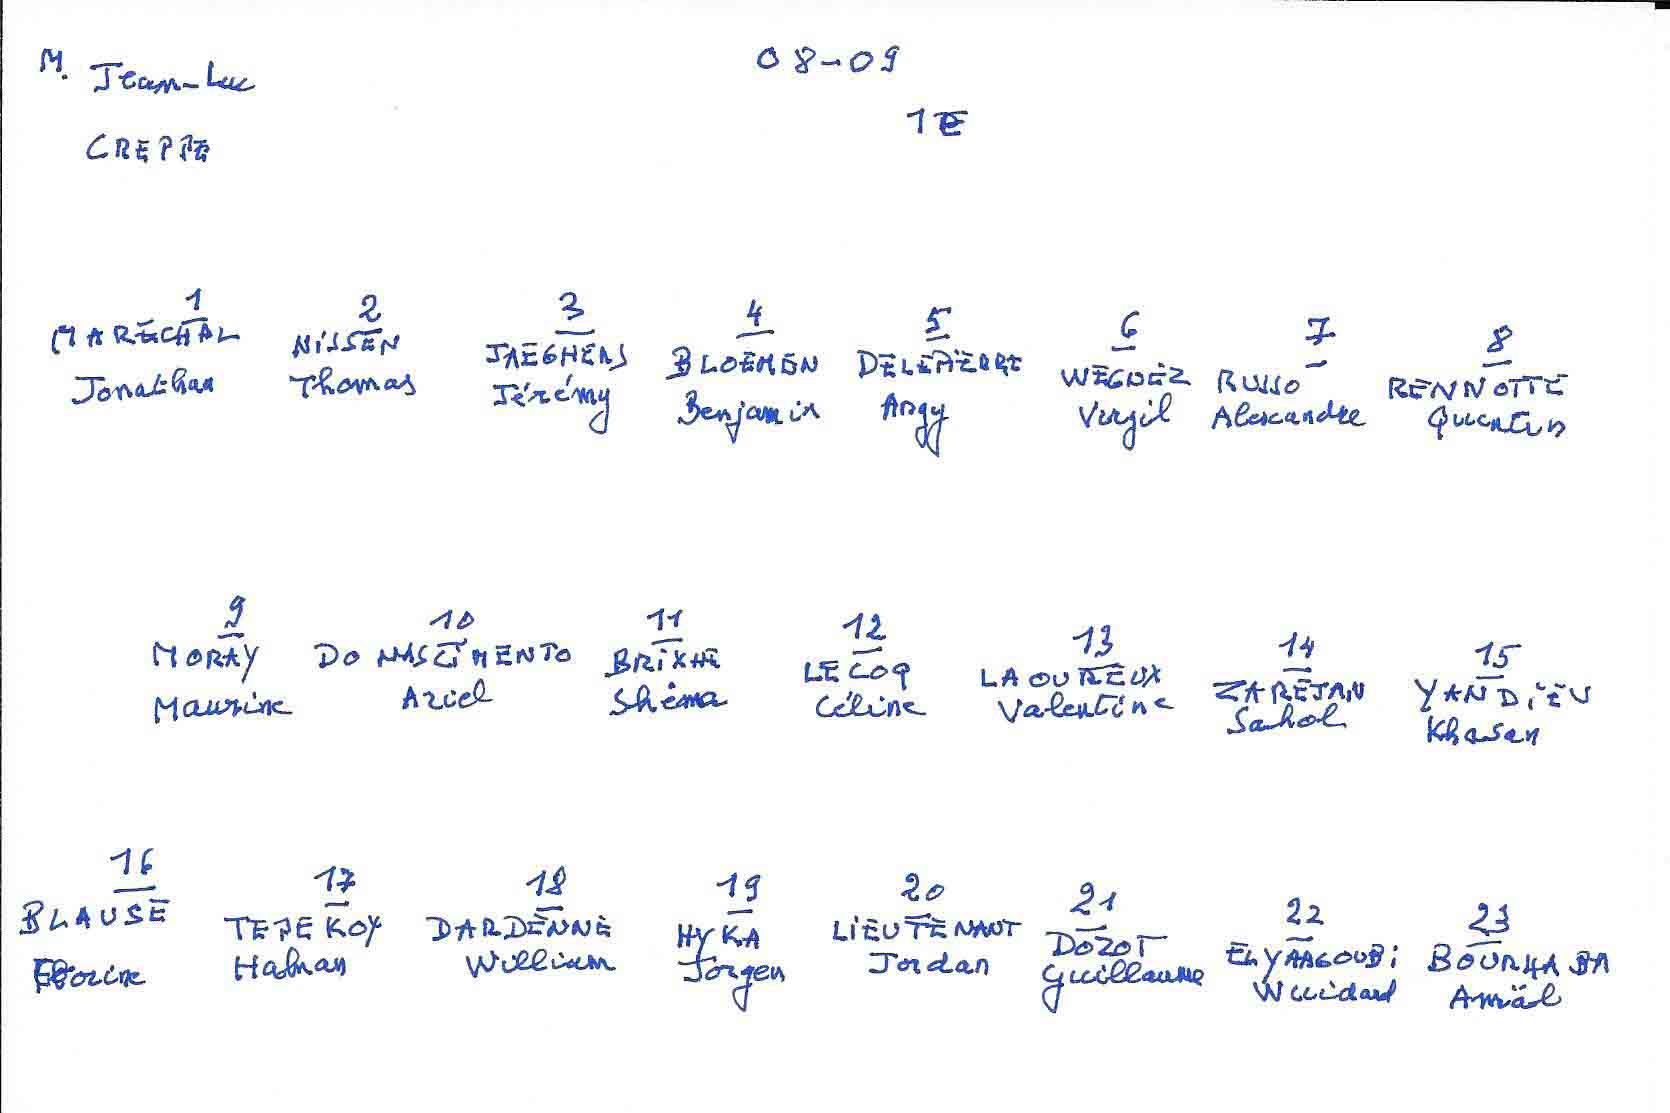 M. Jean-Luc
CREPPE
08-09
1E
1 2 3 4 5 6 7 8
MARECHAL NISSEN JAEGHERS BLOEMEN DELEPIERRE WEGNEZ RUSSO RENNOTTE
Jonathan Thomas Jérémy Benjamin Argy Virgil Alexandre Quentin
9 10 11 12 13 14 15
MORAY DO NASCIMENTO BRIXHE LECOQ LAOUREUX ZAREJAN YANDIEV
Maurine Ariel Shéma Céline Valentine Sahol Khasan
16 17 18 19 20 21 22 23
BLAUSE TEPEKOY DARDENNE HYKA LIEUTENANT DOZOT ELYAAGOUBI BOURHABA
William Jorgen Jordan Guillaume Amäl